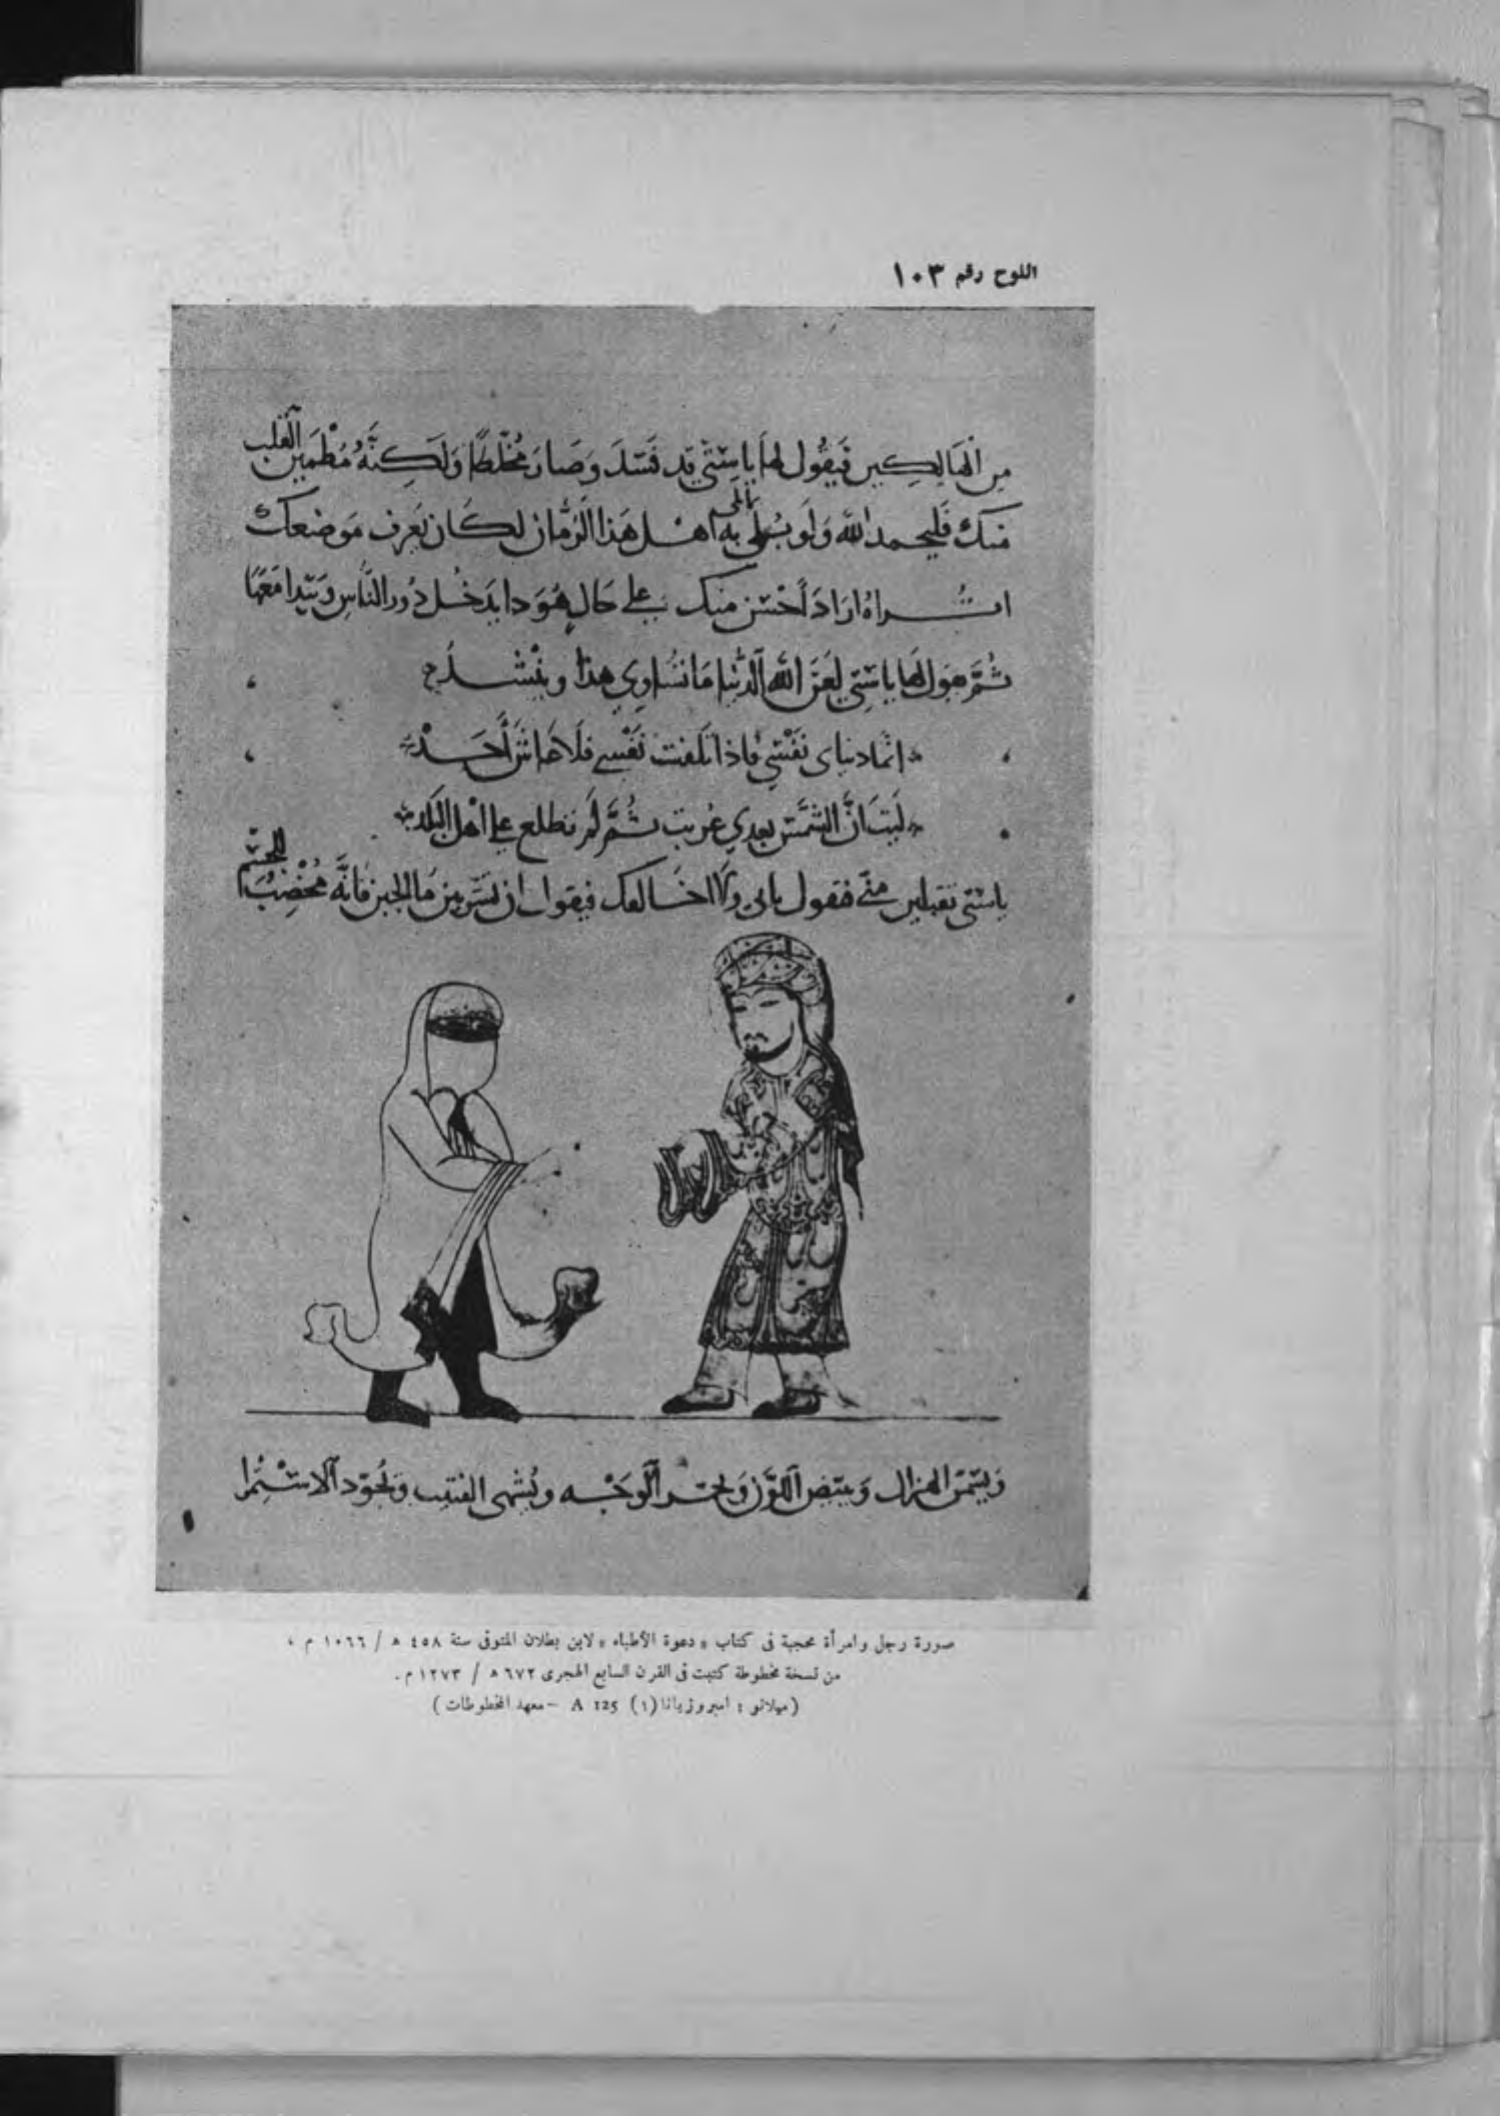 اللوح رقم ١٠٣
من الهالكين فيقول لها يا ستي قد فسد وصار مخلطا ولكنه مطمين القلب
منك فليحمد الله ولو بُلي به اهل هذا الزمان لكان يعرف موضعك
اتراه اراد احسن منك علي حال هو دا يدخل دور الناس
ثم يقول لها يا ستي لعن الله الدنيا ما تساوي هذا وينشد
انما دنياى نفسي فاذا تلفت نفسي فلا عاش أحد
ليت ان الشمس بعدي غربت ثم لم تطلع علي اهل البلد
يا ستي تقبلين مني فتقول يا بي ولا اخالفك فيقول ان تشربين ما الجبن فانه مخصب للجسم
ويسمن الهزال ويبيض اللون ويحمر الوجه ويشهي ويجود الاستمرا
صورة رجل وامرأة محجبة فى كتاب « دعوة الأطباء » لابن بطلان المتوفى سنة ٤٥٨ ھ / ١٠٦٦ م ،
من نسخة مخطوطة كتبت فى القرن السابع الهجرى ٦٧٢ ھ / ١٢٧٣ م .
( ميلانو : امبروزيانا (١) A 125 – معهد المخطوطات )